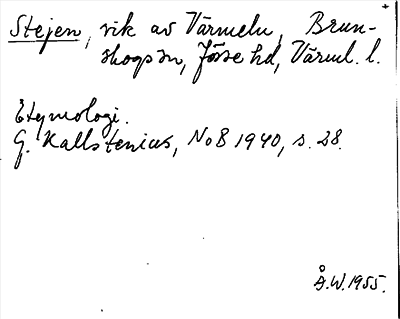 Stejen, vik av Värmeln, Brun-
skogs sn, Jösse hd, Värml. l.
Etymologi.
G. Kallstenius, NoB 1940, s. 28.
Å.W. 1955.